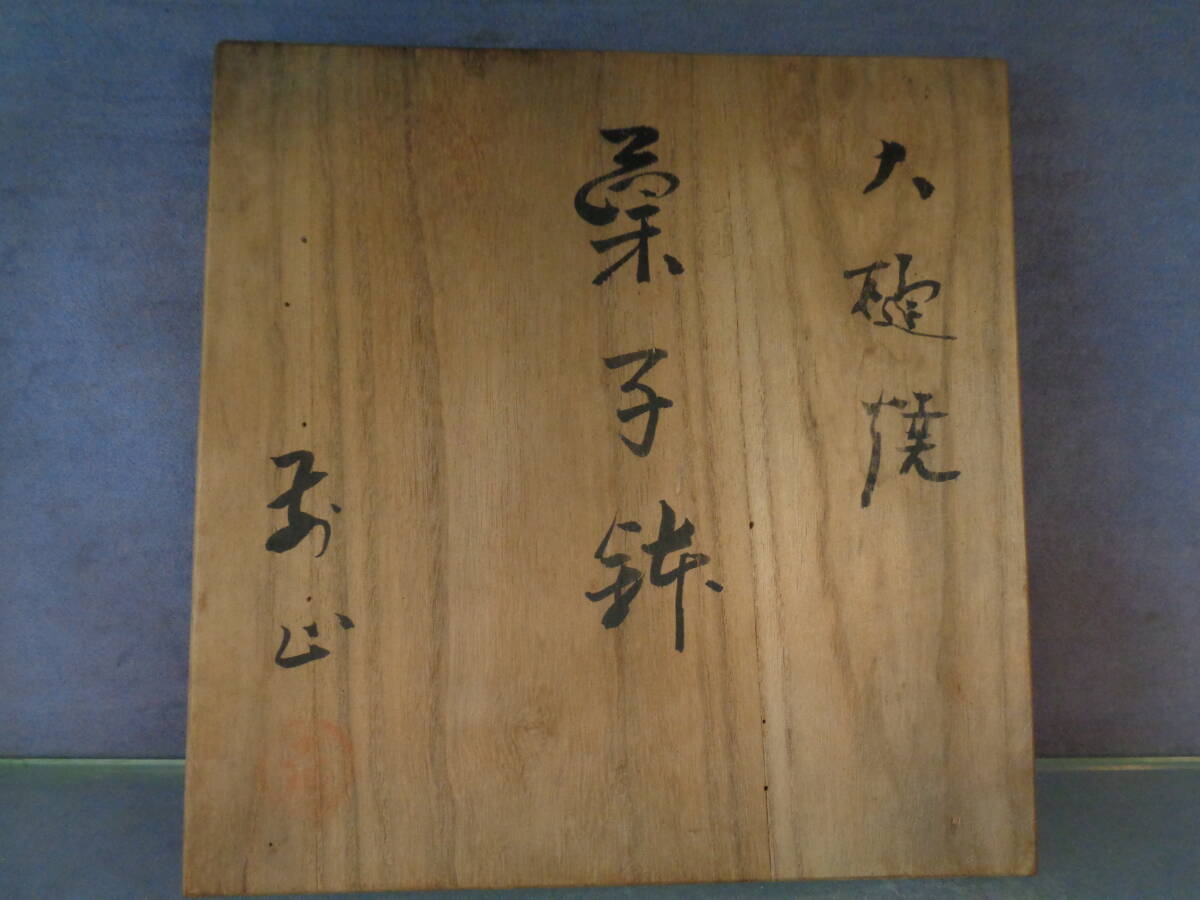 大樋焼
菓子鉢
寿山